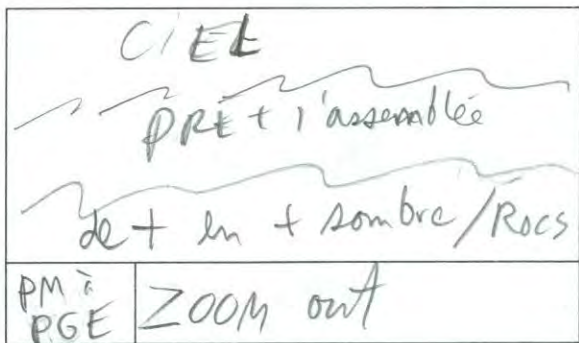 CiEL
PRE + l'assemblée
de + en + sombre / Rocs
PM à
PGE
ZOOM out